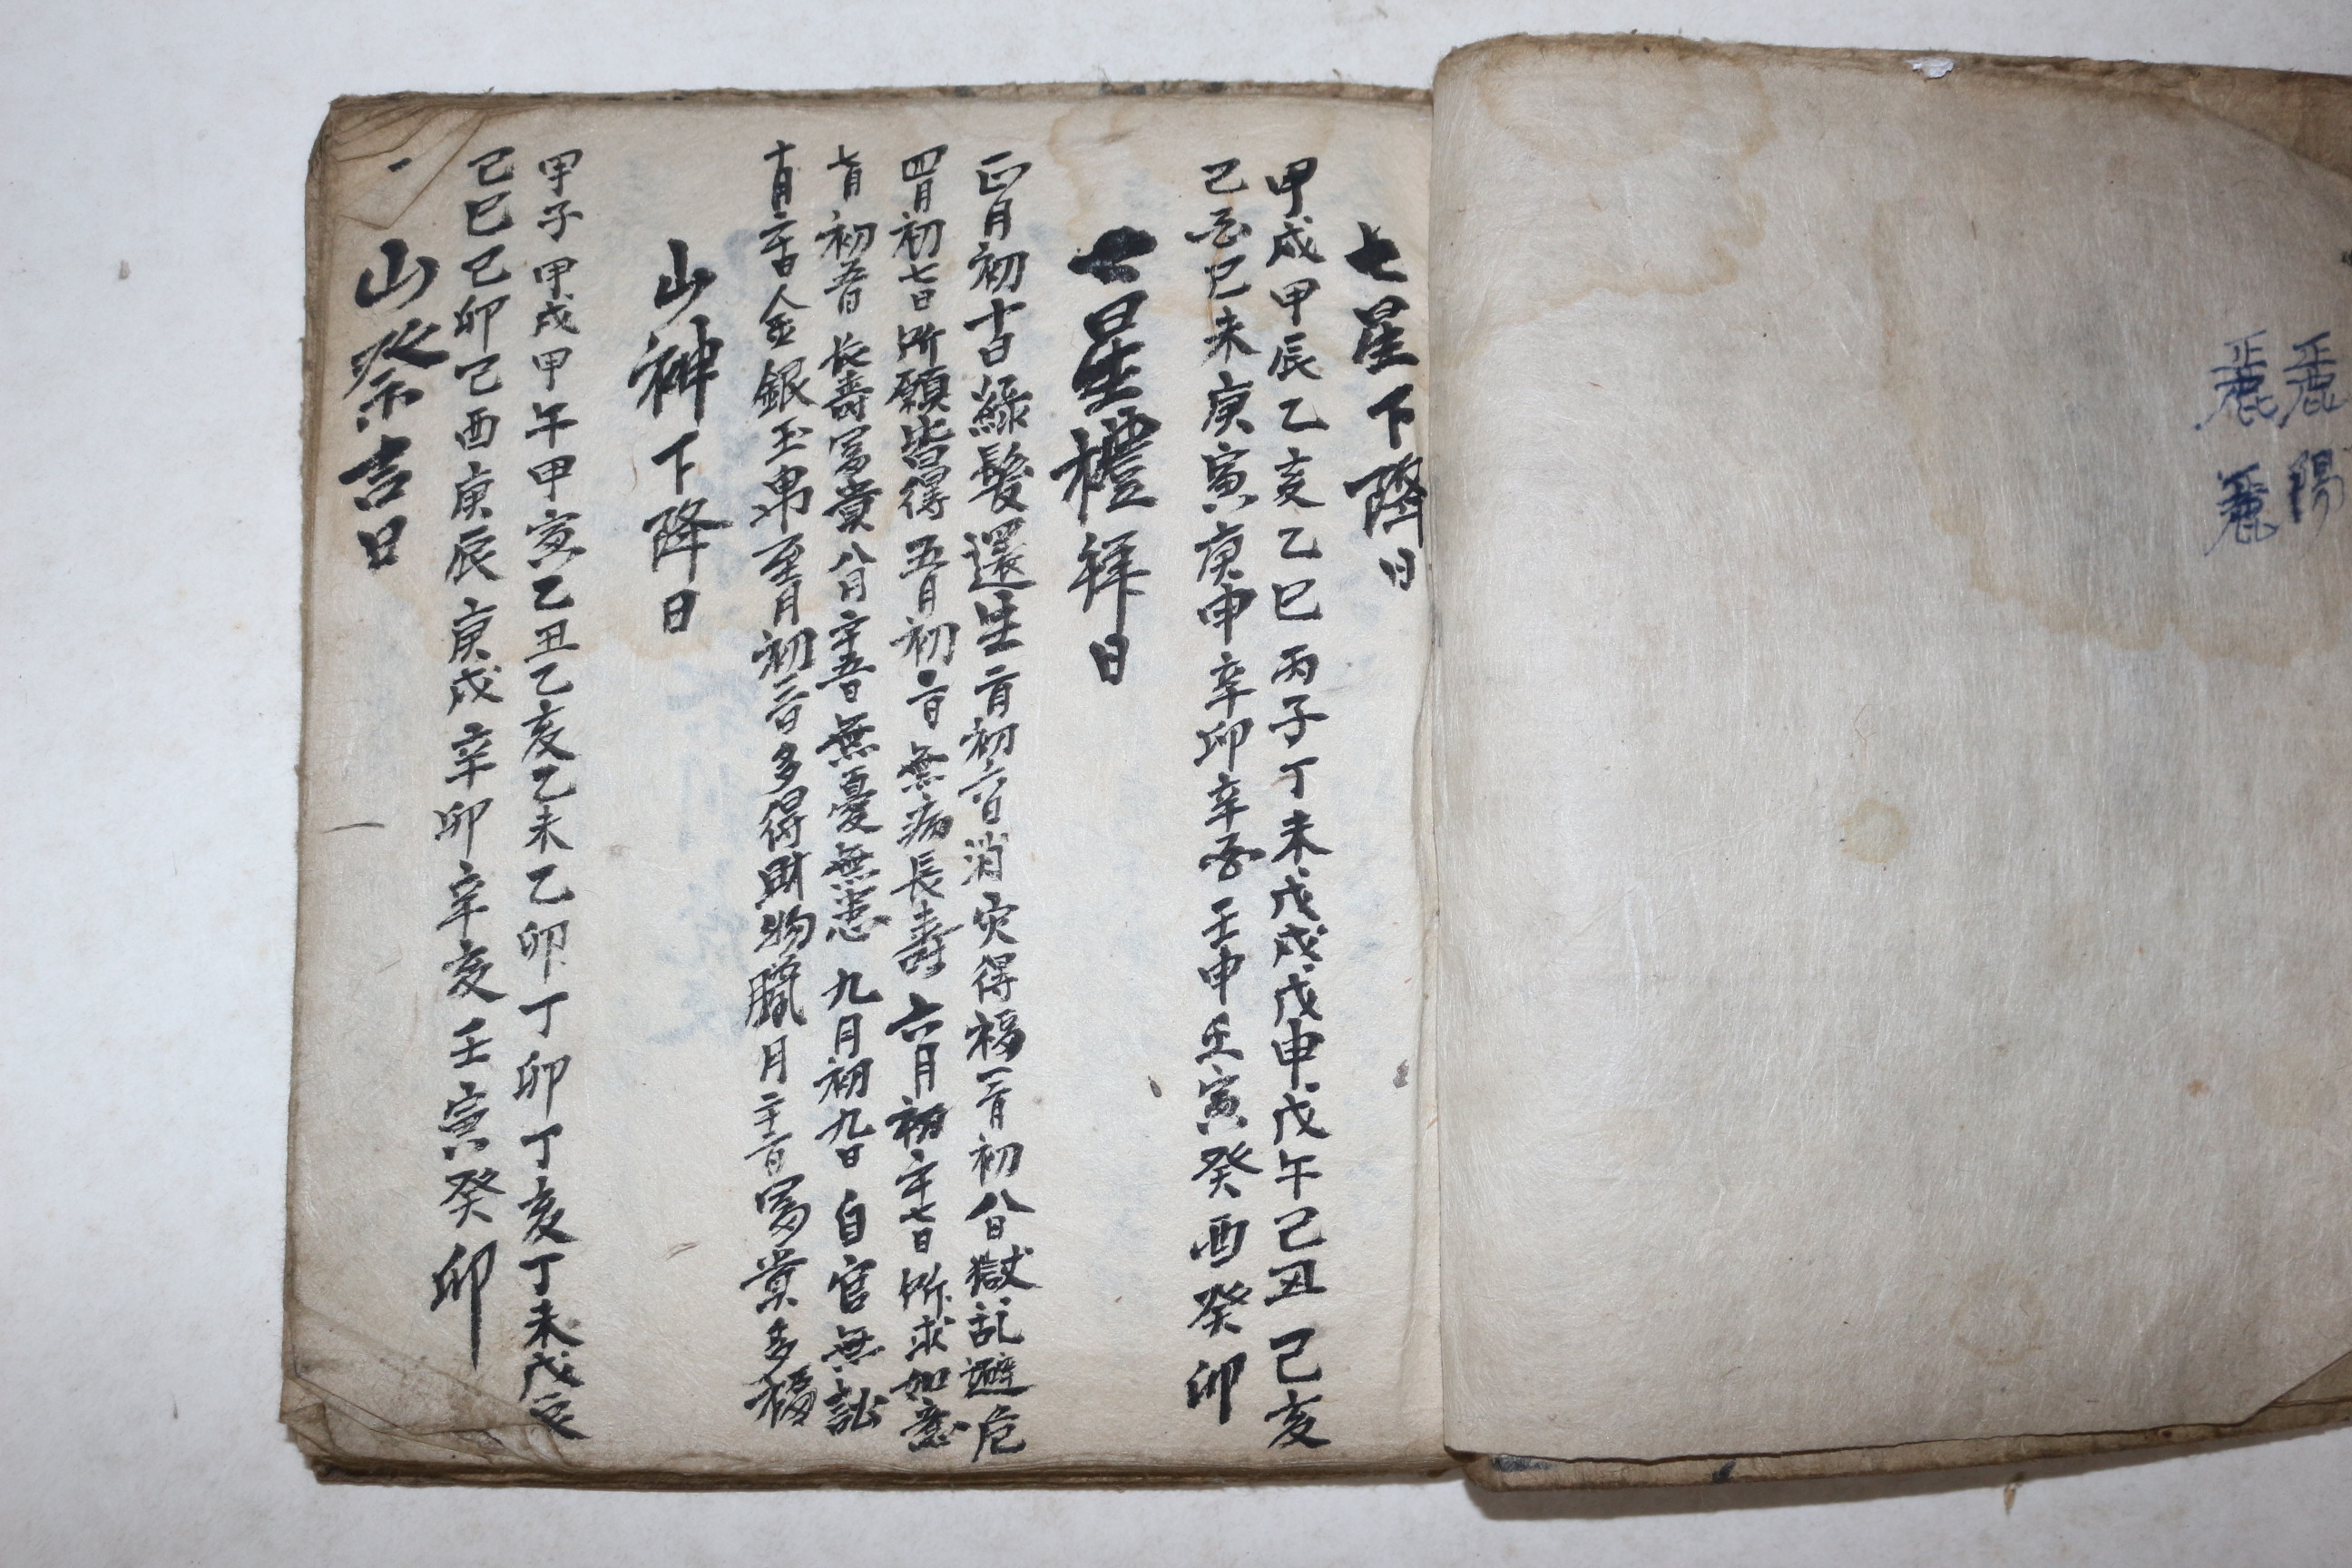 麗陽
麗麗
七星下降日
甲戌甲辰乙亥乙巳丙子丁未戊戌戊申戊午己丑己亥
己酉己未庚寅庚申辛卯辛酉壬申壬寅癸酉癸卯
七星禮拜日
正月初十日綠髮還生二月初六日消灾得福三月初八日獄訟避危
四月初七日所願皆得五月初二日無病長壽六月初二十七日所求如意
七月初五日長壽富貴八月二十五日無憂無患九月初九日自官無訟
十月二十日金銀玉帛至月初三日多得財物臘月二十六日富貴多福
山神下降日
甲子甲戌甲午甲寅乙丑乙亥乙未乙卯丁卯丁亥丁未戊辰
己巳己卯己酉庚辰庚戌辛卯辛亥壬寅癸卯
一 山祭吉日